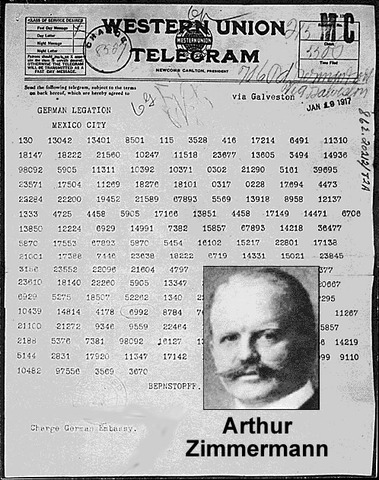 WESTERN UNION
TELEGRAM
NEWCOMB CARLTON, PRESIDENT
CLASS OF SERVICE DESIRED
Fast Day Message
Day Letter
Night Message
Night Letter
Patrons should mark an X opposite the class of service desired; OTHERWISE THE TELEGRAM WILL BE TRANSMITTED AS A FAST DAY MESSAGE.
WESTERN UNION
Time Filed
Send the following telegram, subject to the terms
on back hereof, which are hereby agreed to
via Galveston
JAN 19 1917
GERMAN LEGATION
MEXICO CITY
130 13042 13401 8501 115 3528 416 17214 6491 11310
18147 18222 21560 10247 11518 23677 13605 3494 14936
98092 5905 11311 10392 10371 0302 21290 5161 39695
23571 17504 11269 18276 18101 0317 0228 17694 4473
22284 22200 19452 21589 67893 5569 13918 8958 12137
1333 4725 4458 5905 17166 13851 4458 17149 14471 6706
13850 12224 6929 14991 7382 15857 67893 14218 36477
5870 17553 67893 5870 5454 16102 15217 22801 17138
21001 17388 7446 23638 18222 6719 14331 15021 23845
3156 23552 22096 21604 4797
23610 18140 22260 5905 13347
6929 5275 18507 52262 1340
10439 14814 4178 6992 8784 11267
21100 21272 9346 9559 22464
2188 5376 7381 98092 16127 14219
5144 2831 17920 11347 17142 9110
10482 97556 3569 3670
BERNSTORFF.
Charge German Embassy.
Arthur
Zimmermann